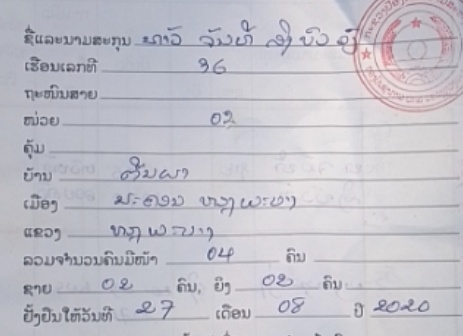 ຊື່ແລະນາມສະກຸນ ທ້າວ
ເຮືອນເລກທີ 36
ຖະໜົນສາຍ
ໜ່ວຍ 02
ຄຸ້ມ
ບ້ານ
ເມືອງ ນະຄອນ ຫຼວງພະບາງ
ແຂວງ ຫຼວງພະບາງ
ລວມຈຳນວນຄົນມີໜ້າ 04 ຄົນ
ຊາຍ 02 ຄົນ, ຍິງ 02 ຄົນ
ຢັ້ງຢືນໃຫ້ວັນທີ 27 ເດືອນ 08 ປີ 2020